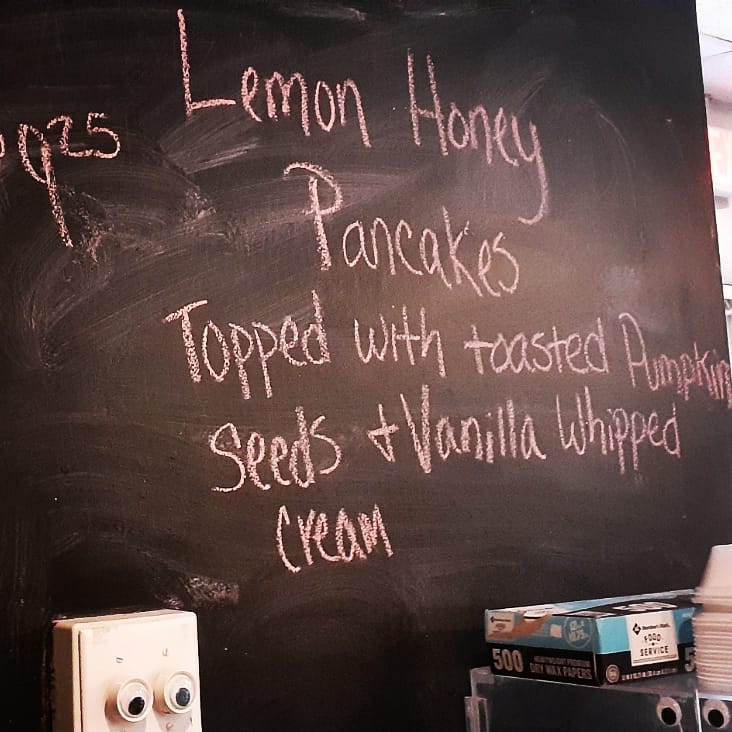 Lemon Honey
Pancakes
Topped with toasted Pumpkin
Seeds + Vanilla Whipped
Cream
925
Member's Mark
FOOD
SERVICE
500
HEAVYWEIGHT PREMIUM
DRY WAX PAPERS